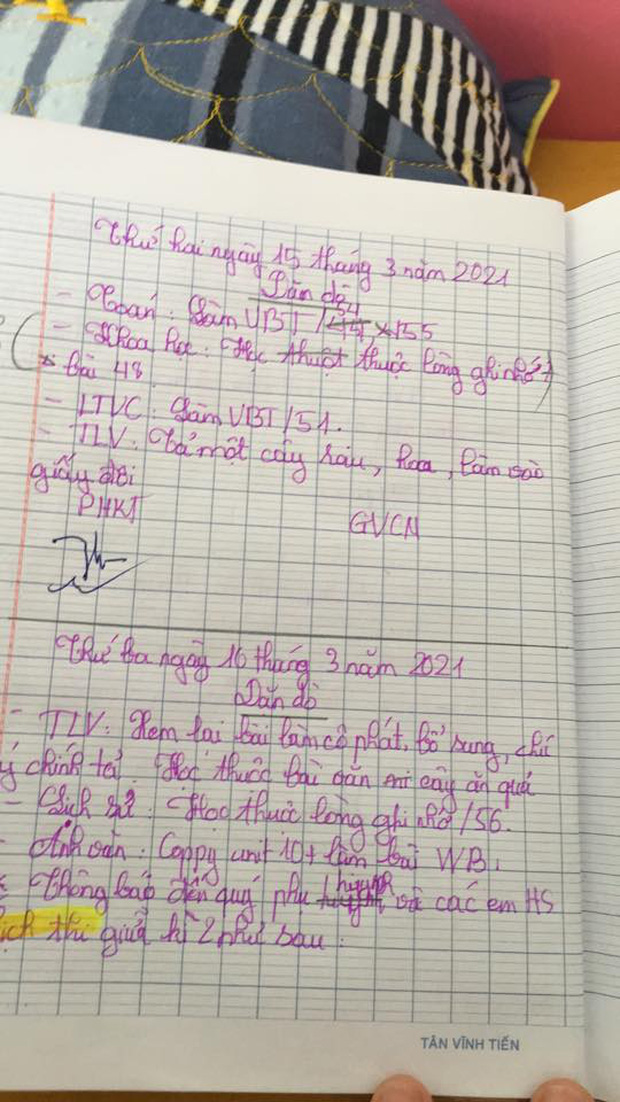 Thứ hai ngày 15 tháng 3 năm 2021
Dặn dò
- Toán: Làm VBT / 54 x 155
- Khoa học: Học thuột thuộc lòng ghi nhớ
bài 48
- LTVC: Làm VBT / 51.
- TLV: Tả một cây rau, hoa, làm vào
giấy đôi
PHKT
GVCN
Thứ ba ngày 16 tháng 3 năm 2021
Dặn dò
- TLV: Xem lai bài làm cô phát, bổ sung, chú
ý chính tả. Học thuộc bài cây ăn quả
- Lịch sử: Học thuộc lòng ghi nhớ / 56.
- Anh văn: Coppy unit 10 + làm bài WB.
Thông báo đến quý phụ huynh và các em HS
ịch thi giữa kì 2 như sau:
TÂN VĨNH TIẾN